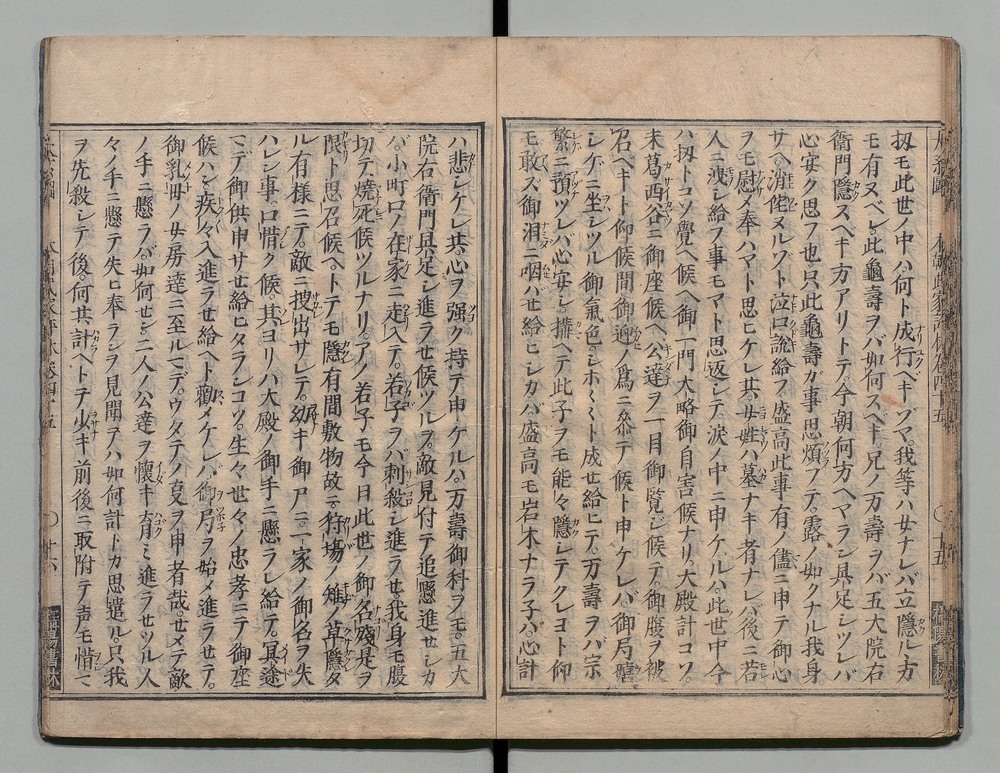 扨モ此世ノ中ハ何ト成行ベキゾマ。我等ハ女ナレバ立隠ル方
モ有ヌベシ此龜壽ヲバ如何スベキ兄ノ万壽ヲバ五大院右
衛門隠スベキ方アリトテ今朝何方ヘマラン具足シツレバ
心安ク思フ也只此龜壽ガ事思煩フテ。露ノ如クナル我身
サヘ消侘ヌルゾト泣口説給フ盛高此事有ノ儘ニ申テ御心
ヲモ慰メ奉ハマト思ヒケレ共。女姓ハ墓ナキ者ナレバ後ニ若
人ニ洩シ給フ事モマト思返シテ涙ノ中ニ申ケルハ。此世中今
ハ扨トコソ覺ヘ候ヘ御一門大略御自害候ナリ。大殿計コソ。
未葛西谷ニ御座候ヘ公達ヲ一目御覧ジ候テ。御腹ヲ被
召ベキトト仰候間御迎ノ為ニ参テ候ト申ケレバ。御局
シゲニ坐シツル御氣色シホ〳〵ト成セ給ヒテ。万壽ヲバ宗
繁ニ預ツレバ心安シ。構ヘテ此子ヲモ能々隠シテクレヨト仰
モ敢ズ御泪ニ咽ハセ給ヒシカバ盛高モ岩木ナラ子バ。心計
ハ悲シケレ共。心ヲ强ク持テ申ケルハ。万壽御料ヲモ。五大
院右衛門具足シ進ラセ候ツルヲ。敵見付テ追懸進セシカ
バ。小町口ノ在家ニ走入テ。若子ヲバ刺殺シ進ラセ。我身モ股
切テ。燒死候ツルナリ。アノ若子モ今日此世ノ御名殘是ヲ
限ト思召候ヘ。トテモ隠有間敷物故ニ。狩場ノ雉ノ草隠タ
ル有様ニテ。敵ニ捜出サレテ。幼キ御尸ニ。一家ノ御名ヲ失
ハレン事。口惜ク候。其ヨリハ大殿ノ御手ニ懸ラレ給テ。冥途
マデ御供申サセ給ヒタランコソ。生々世々ノ忠孝ニテ御座
候ハンズ疾々入進ラセ給ヘト勸メケレバ御局ヲ始メ進ラセテ。
御乳毋ノ女房達ニ至ルマデ。ウタテノ㕝ヲ申者哉。セメテ敵
ノ手ニ懸ラバ。如何セン二人ノ公達ヲ懐キ育ミ進ラセツル人
々ノ手ニ懸テ失ヒ奉ランヲ見聞テハ如何計トカ思遣ル。只我
ヲ先殺シテ後。何共計ヘトテ少キ前後ニ取附テ声モ惜マ